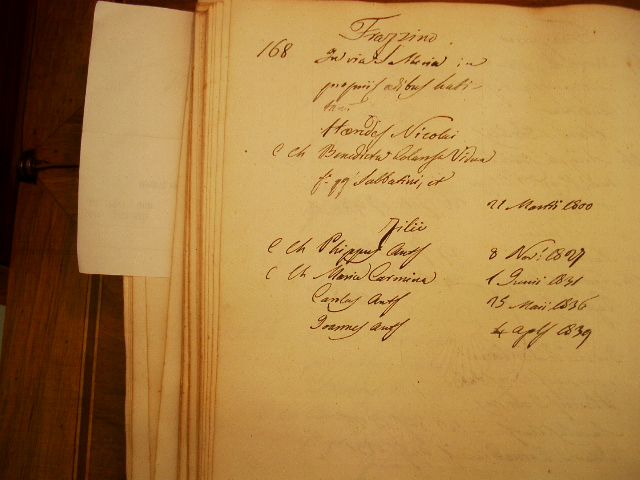 Frazzino.
168 In via S Maria in
propriis aedibus habi-
tant
Haeredes Nicolai
C Ch Benedicta Colanza Vidua
f. qq. Sabbatini, et
21 Martii 1800
Filii
C Ch Phippus Ants 8 Nov. 1827
C Ch Maria Carmina 1 Junii 1831
Carlus Ants 25 Maii 1836
Joannes Ants 4 Aplis 1839